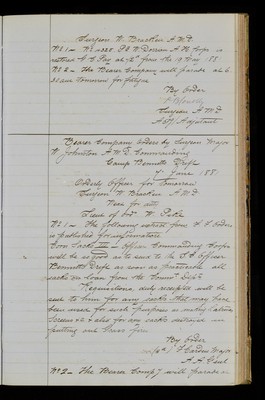 Surgeon W. Bracken A.M.D.
No 1 - No 4328 P. O W. Dorrian A.H. Corps is
 C.C. Pay at from the 19 May 188
No 2 - The Bearer Company will parade at 6.
30 am tomorrow for fatigue
By Order
Surgeon A.M.D
Adjutant
Bearer Company Orders by Surgeon Major
W Johnston A.M.D. Commanding
Camp Bennetts Drift
7 June 188
Orderly Officer for tomorrow
Surgeon W. Bracken A.M.D.
Next for duty
Lieut of Ord W. Pike
No 1 - The following extract from F. F. Orders
is published for information
Corn Sacks IV - Officer Commanding Corps
will be so good as to send to the S. O Officer
Bennetts Drift as soon as practicable all
sacks on loan from the Commt Dept
Requisitions, duly receipted will be
sent to him for any sacks that may have
been used for such purposes as making Latrine
Screens &c & also for any sacks retained in
putting and
By Order
 J. Harden Major
A.A. Genl
No 2 - The Bearer Comp'y will parade a